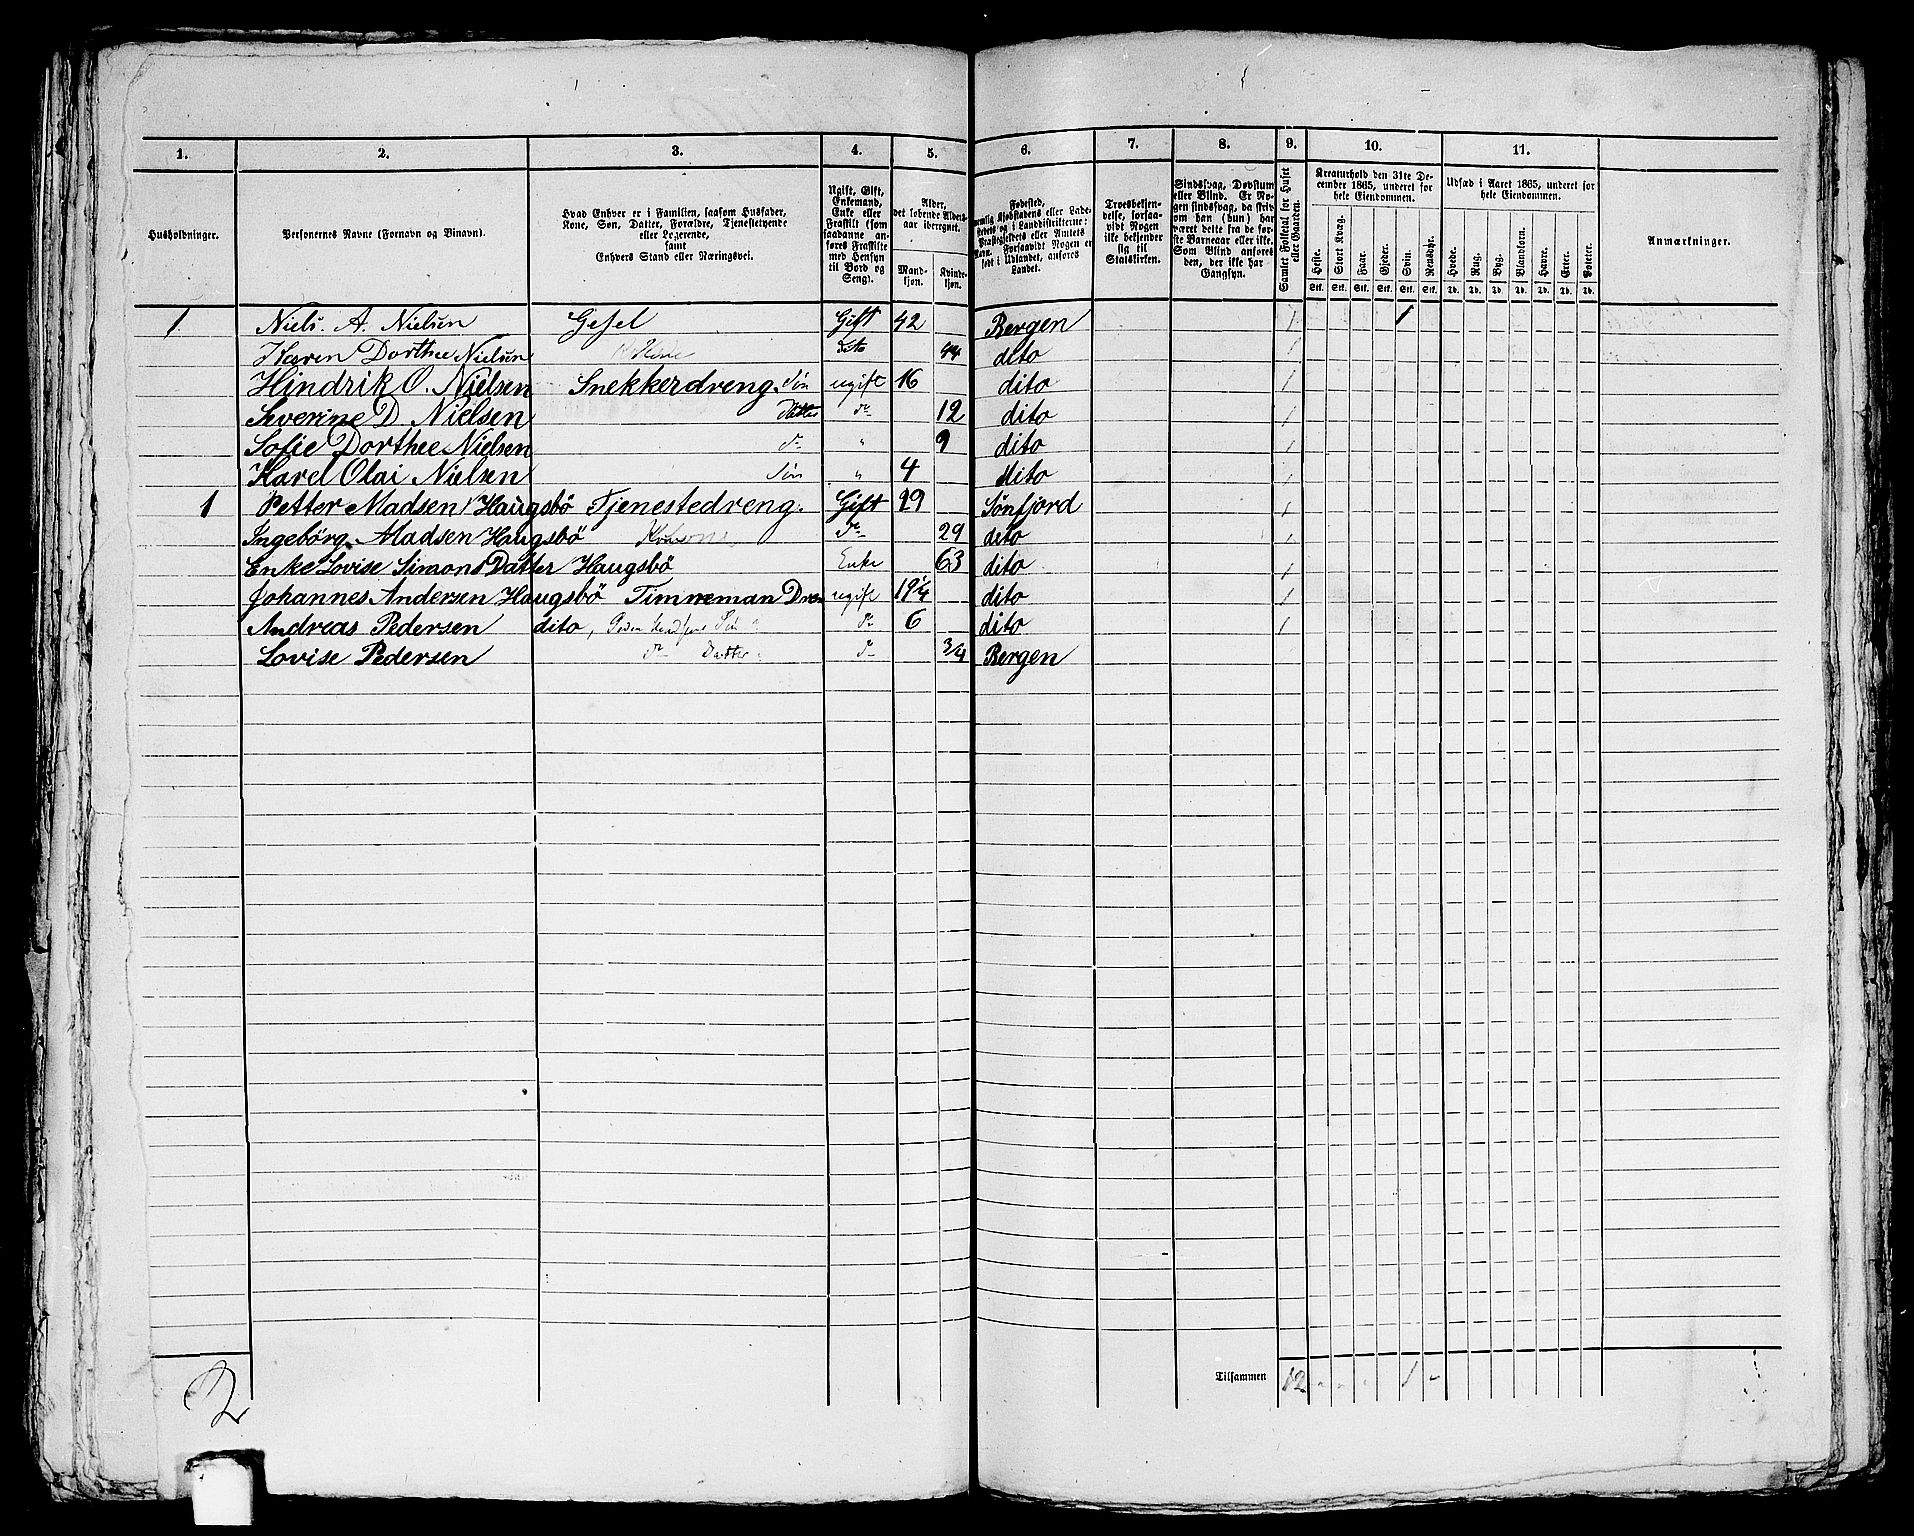 1. 2. 3. 4. 5. 6. 7. 8. 9. 10. 11.
Husholdninger.
Personernes Navne (Fornavn og Binavn).
Hvad Enhver er i Familien, saasom Husfader,
Kone, Søn, Datter, Forældre, Tjenestetyende
eller Logerende,
samt
Enhvers Stand eller Næringsvei.
Ugift, Gift,
Enkemand,
Enke eller
Fraskilt (som
saadanne an-
føres Fraskilte
med Hensyn
til Bord og
Seng).
Alder,
det løbende Alders-
aar iberegnet.
Mand-
kjøn.
Kvinde-
kjøn.
Fødested,
nemlig Kjøbstadens eller Lade-
stedets og i Landdistrikterne:
Præstegjeldets eller Amtets
Navn. Forsaavidt Nogen er
født i Udlandet, anføres
Landet.
Troesbekjen-
delse, forsaa-
vidt Nogen
ikke bekjender
sig til
Statskirken.
Sindssvag, Døvstum
eller Blind. Er No-
gen sindssvag, da skriv
om han (hun) har
været dette fra de før-
ste Barneaar eller ikke.
Som Blind anføres
den, der ikke har
Gangsyn.
Samlet Folketal for Huset
eller Gaarden.
Kreaturhold den 31te De-
cember 1865, underet for
hele Eiendommen.
Heste. Stort Kvæg. Faar. Gjeder. Svin. Rensdyr.
Stk. Stk. Stk. Stk. Stk. Stk.
Udsæd i Aaret 1865, underet for
hele Eiendommen.
Hvede. Rug. Byg. Blandkorn. Havre. Erter. Poteter.
Td. Td. Td. Td. Td. Td. Td.
Anmærkninger.
1 Niels. A. Nielsen Gesel Gift 42 Bergen 1 1
Karen Dorthee Nielsen Kone dito 44 dito 1
Hindrik O. Nielsen Snekkerdreng. Søn ugift 16 dito 1
Severine D Nielsen Datter do 12 dito 1
Sofie Dorthee Nielsen do " 9 dito 1
Karel Olai Nielsen Søn " 4 dito 1
1 Petter Madsen Haugsbö Tjenestedreng. Gift 29 Sønfjord 1
Ingebörg Madsen Haugsbö Kone do 29 dito 1
Enke Lovise Simons Datter Haugsbö Enke 63 dito 1
Johannes Andersen Haugsbö Timmeman Dren ugift 19 1/4 dito 1
Andreas Pedersen dito, Søn do 6 dito 1
Lovise Pedersen do Datter do 3/4 Bergen
Tilsammen 12 " " " 1 "
2